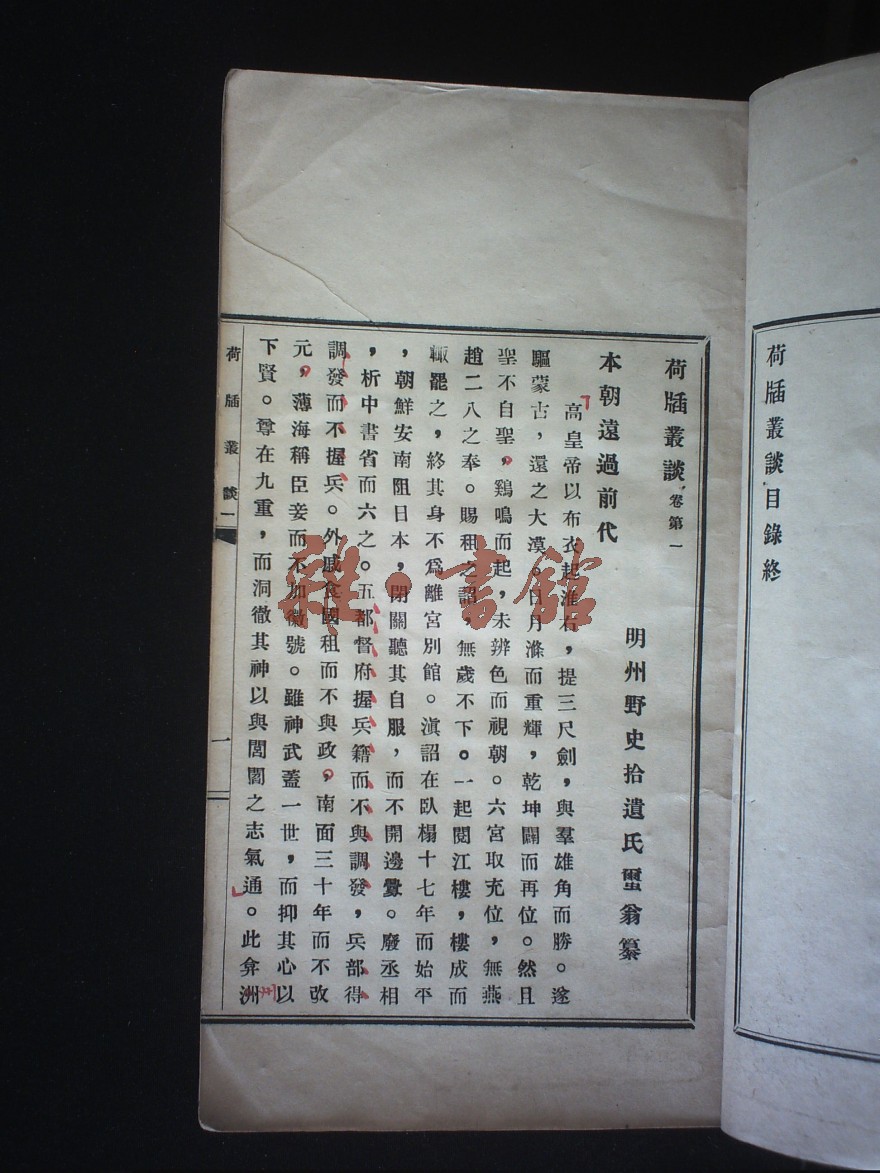 荷牐叢談目錄終
荷牐叢談卷第一
明州野史拾遺氏壐翁纂
本朝遠過前代
高皇帝以布衣起淮右，提三尺劍，與羣雄角而勝。遂
驅蒙古，還之大漠。日月滌而重輝，乾坤闢而再位。然且
聖不自聖，鷄鳴而起，未辨色而視朝。六宮取充位，無燕
趙二八之奉。賜租之詔，無歲不下。一起閱江樓，樓成而
輒罷之，終其身不爲離宮別館。滇詔在臥榻十七年而始平
，朝鮮安南阻日本，閉關聽其自服，而不開邊釁。廢丞相
，析中書省而六之。五都督府握兵籍而不與調發，兵部得
調發而不握兵。外戚食國租而不與政，南面三十年而不改
元，薄海稱臣妾而不加徽號。雖神武蓋一世，而抑其心以
下賢。尊在九重，而洞徹其神以與閭閻之志氣通。此弇洲
荷牐叢談一
一
雜·書館